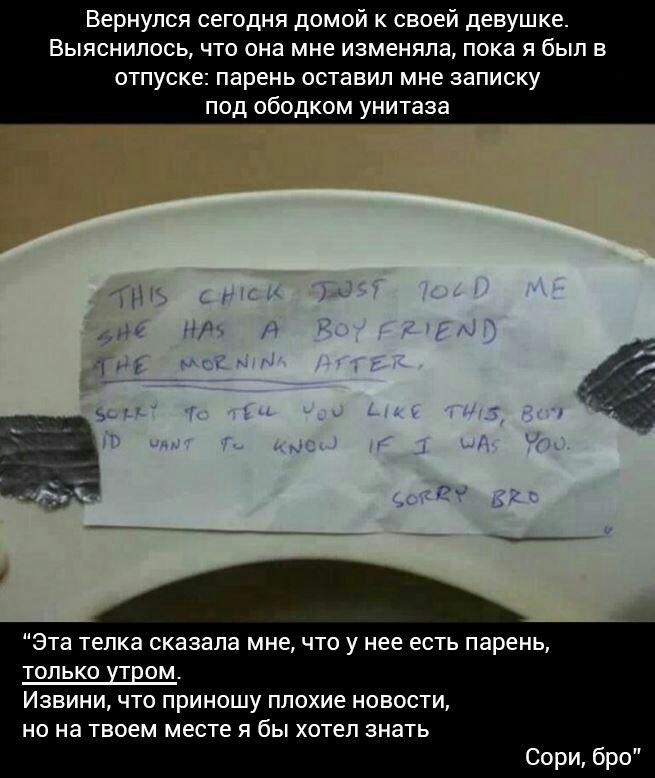 Вернулся сегодня домой к своей девушке.
Выяснилось, что она мне изменяла, пока я был в
отпуске: парень оставил мне записку
под ободком унитаза
THIS CHICK JUST TOLD ME
SHE HAS A BOYFRIEND
THE MORNING AFTER.
SORRY TO TELL YOU LIKE THIS, BUT
ID WANT TO KNOW IF I WAS YOU.
SORRY BRO
“Эта телка сказала мне, что у нее есть парень,
только утром.
Извини, что приношу плохие новости,
но на твоем месте я бы хотел знать
Сори, бро”